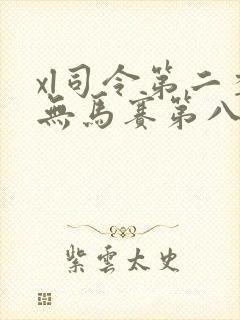 xl司令第二季
無馬賽第八
紫雲太史